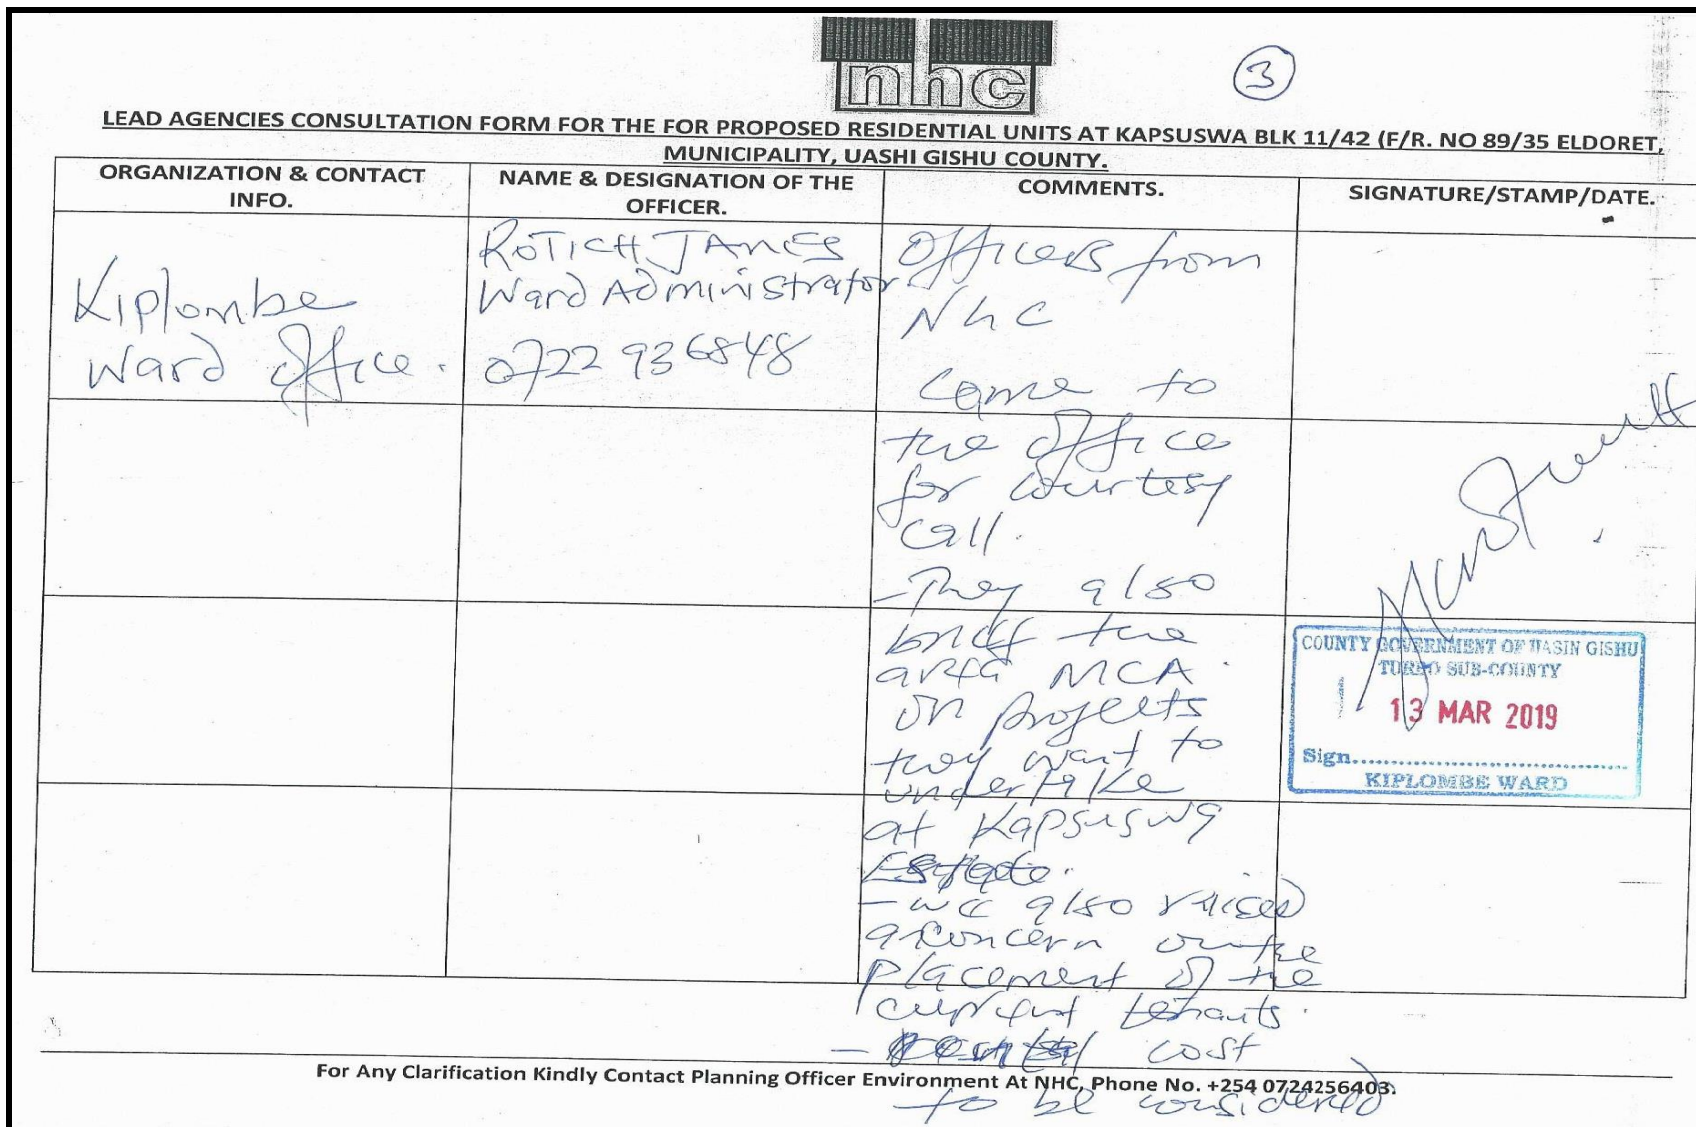 nhc
3
LEAD AGENCIES CONSULTATION FORM FOR THE FOR PROPOSED RESIDENTIAL UNITS AT KAPSUSWA BLK 11/42 (F/R. NO 89/35 ELDORET,
MUNICIPALITY, UASHI GISHU COUNTY.
ORGANIZATION & CONTACT
INFO.
NAME & DESIGNATION OF THE
OFFICER.
COMMENTS.
SIGNATURE/STAMP/DATE.
Kiplombe
Ward Office.
ROTICH JAMES
Ward Administrator
0722 936848
Officers from
Nhc
Came to
the office
for courtesy
call.
- They also
brief the
area MCA.
on projects
they want to
undertake
at Kapsuswa
Estate.
- we also raised
a concern on the
placement of the
current tenants.
- cost
to be considered
COUNTY GOVERNMENT OF UASIN GISHU
TURBO SUB-COUNTY
13 MAR 2019
Sign..............................
KIPLOMBE WARD
For Any Clarification Kindly Contact Planning Officer Environment At NHC, Phone No. +254 0724256403.